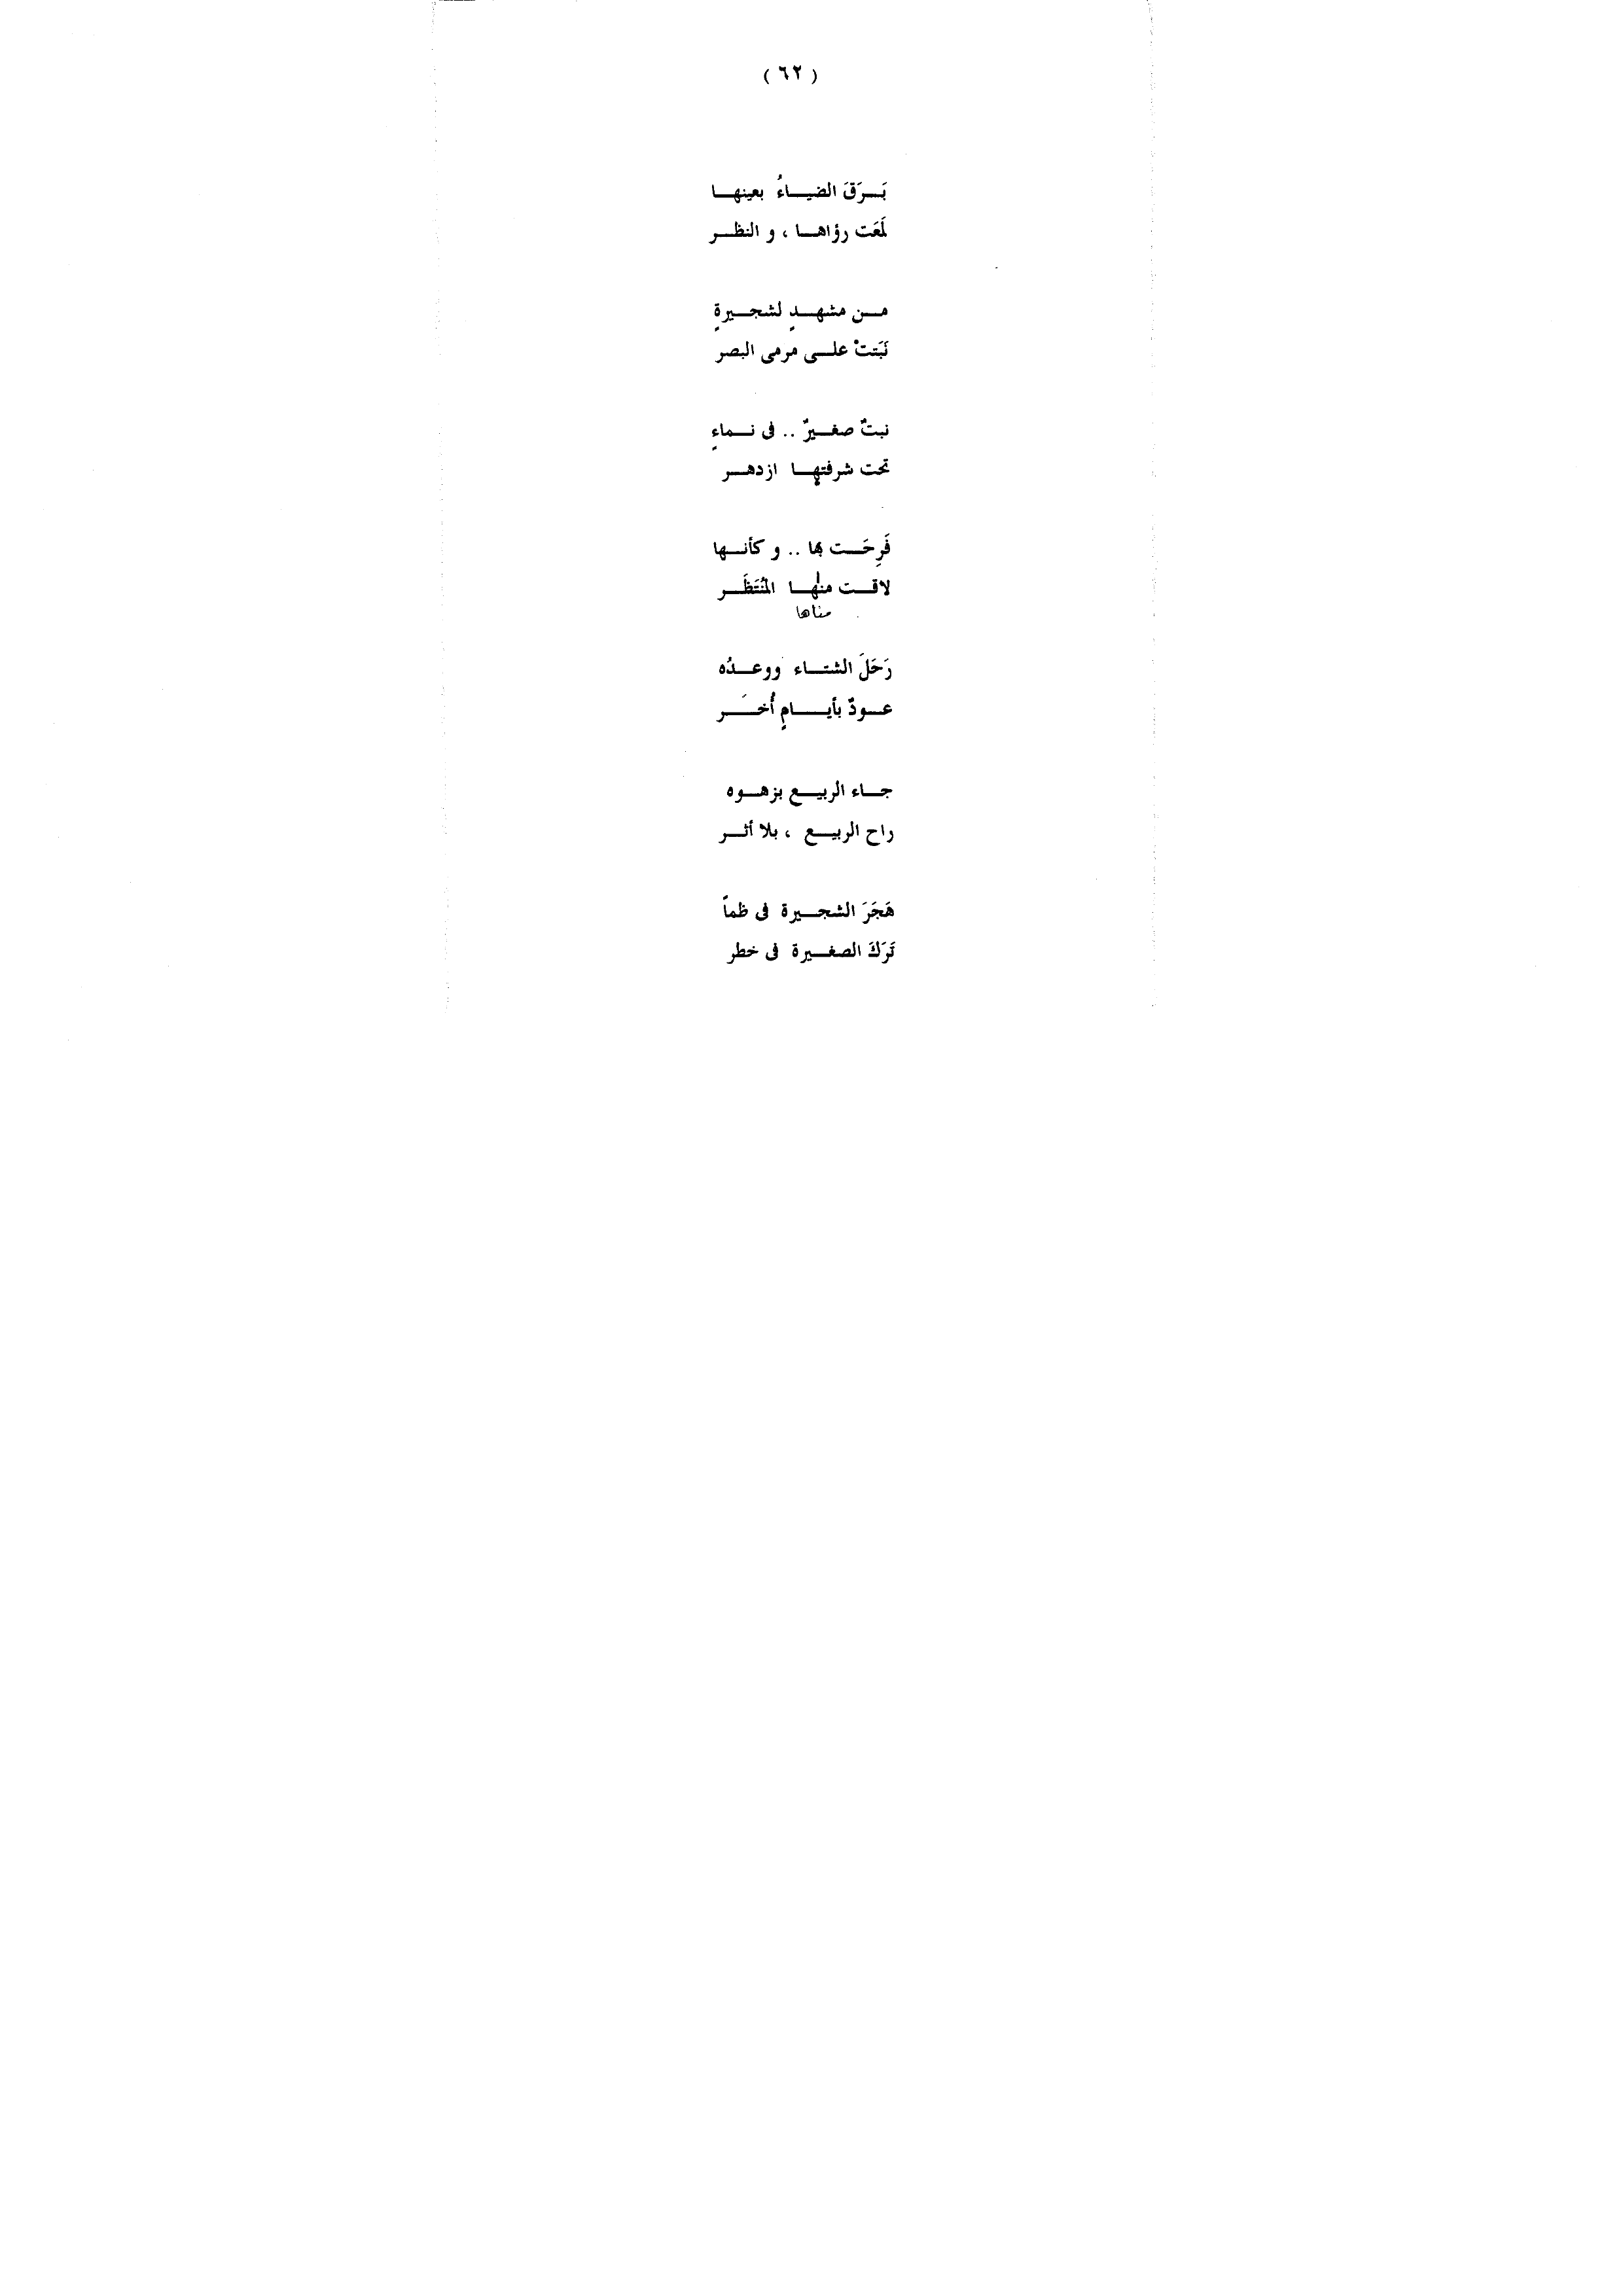 ( ٦٢ )
بَـرَقَ الضيـاءُ بعينهـا
لَمَعَت رؤاهـا ، و النظـر
مـن مشهـدٍ لشجـيرةٍ
نَبَتتْ علـى مرمى البصر
نبتٌ صغـيرٌ .. فى نـماءٍ
تحت شرفتهـا ازدهـر
فَرِحَـت بها .. و كأنـها
لاقـت منها المُنْتَظَـر
مناها
رَحَلَ الشتـاء ووعـدُه
عـودٌ بأيـامٍ أُخـَر
جـاء الربيـع بزهـوه
راح الربيـع ، بلا أثـر
هَجَرَ الشجـيرة فى ظمأً
تَرَكَ الصغـيرة فى خطر